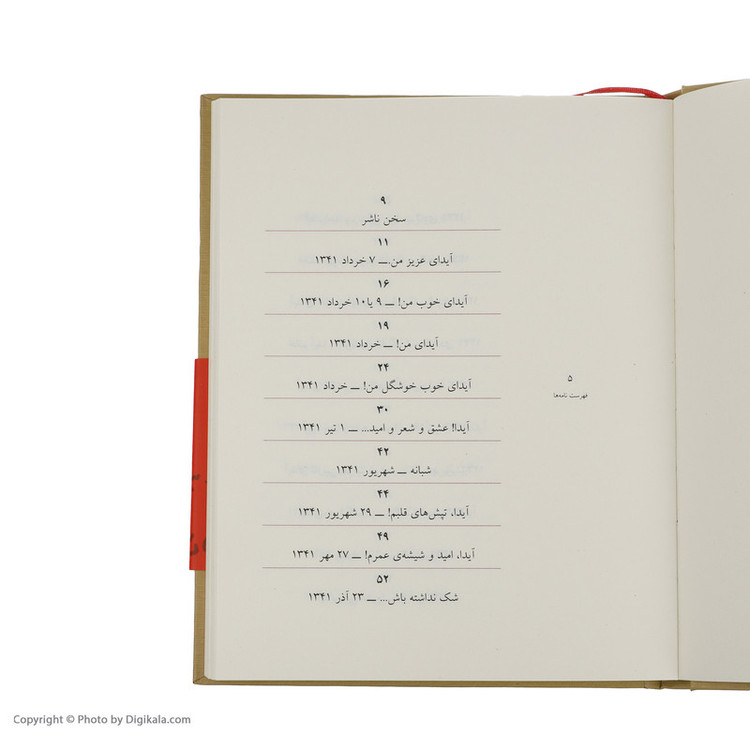 ۹
سخن ناشر
۱۱
آیدای عزیز من ــ ۷ خرداد ۱۳۴۱
۱۶
آیدای خوب من! ــ ۹ یا ۱۰ خرداد ۱۳۴۱
۱۹
آیدای من! ــ خرداد ۱۳۴۱
۲۴
آیدای خوب خوشگل من! ــ خرداد ۱۳۴۱
۳۰
آیدا! عشق و شعر و امید... ــ ۱ تیر ۱۳۴۱
۴۲
شبانه ــ شهریور ۱۳۴۱
۴۴
آیدا، تپش‌های قلبم! ــ ۲۹ شهریور ۱۳۴۱
۴۹
آیدا، امید و شیشه‌ی عمرم! ــ ۲۷ مهر ۱۳۴۱
۵۲
شک نداشته باش... ــ ۲۳ آذر ۱۳۴۱
۵
فهرست نامه‌ها
Copyright © Photo by Digikala.com